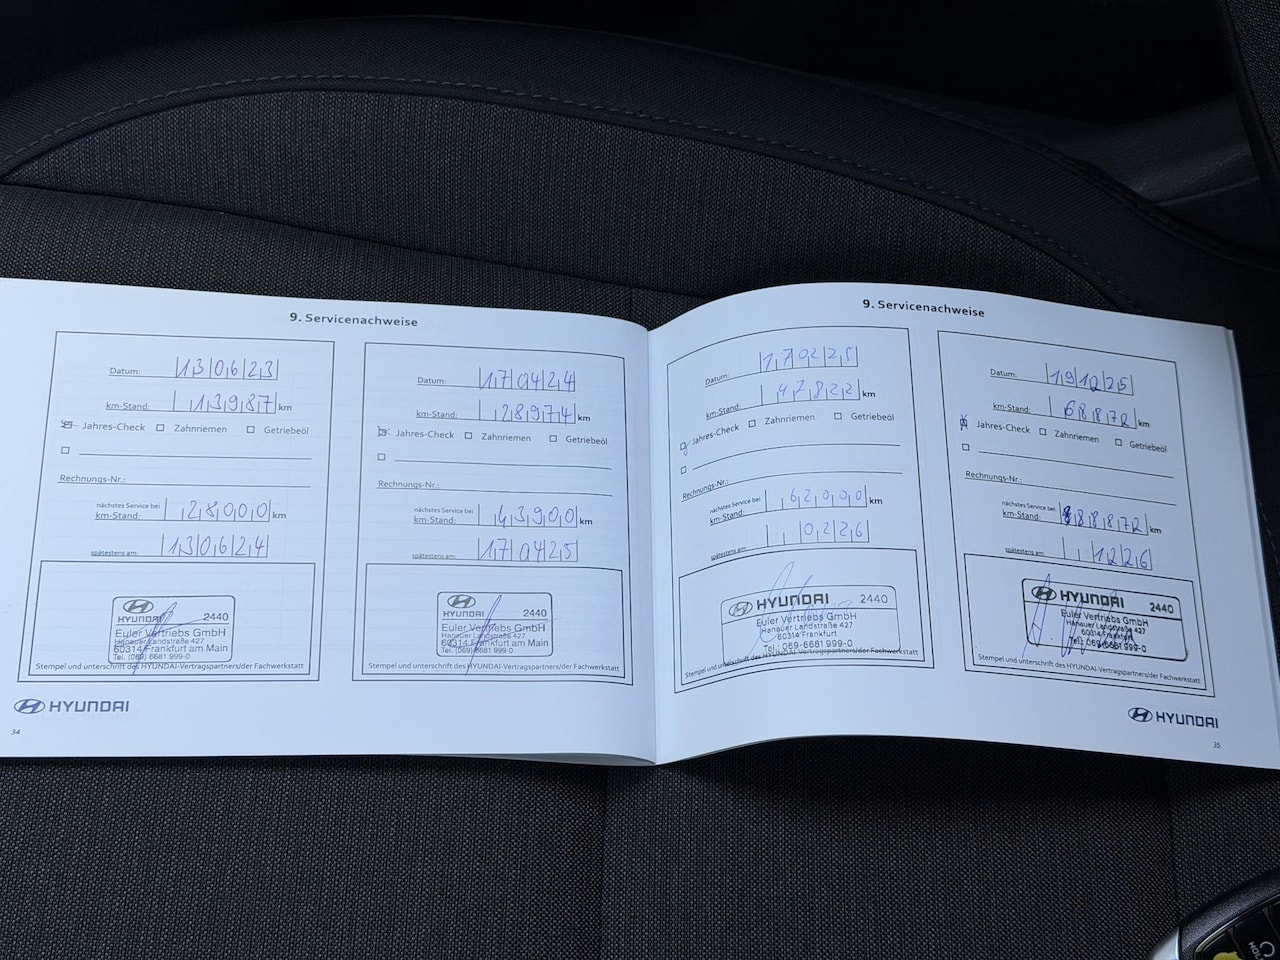 9. Servicenachweise
Datum: 13 06 23
km-Stand: 13987 km
Jahres-Check Zahnriemen Getriebeöl
Rechnungs-Nr.:
nächstes Service bei
km-Stand: 28000 km
spätestens am: 13 06 24
HYUNDAI 2440
Euler Vertriebs GmbH
Hanauer Landstraße 427
60314 Frankfurt am Main
Tel. (069) 6681 999-0
Stempel und unterschrift des HYUNDAI-Vertragspartners/der Fachwerkstatt
Datum: 17 04 24
km-Stand: 28974 km
Jahres-Check Zahnriemen Getriebeöl
Rechnungs-Nr.:
nächstes Service bei
km-Stand: 43900 km
spätestens am: 17 04 25
HYUNDAI 2440
Euler Vertriebs GmbH
Hanauer Landstraße 427
60314 Frankfurt am Main
Tel. (069) 6681 999-0
Stempel und unterschrift des HYUNDAI-Vertragspartners/der Fachwerkstatt
HYUNDAI
34
9. Servicenachweise
Datum:
km-Stand: 47822 km
Jahres-Check Zahnriemen Getriebeöl
Rechnungs-Nr.:
nächstes Service bei
km-Stand: 62000 km
spätestens am: 02 26
HYUNDAI 2440
Euler Vertriebs GmbH
Hanauer Landstraße 427
60314 Frankfurt
Tel.: 069-6681 999-0
Stempel und unterschrift des HYUNDAI-Vertragspartners/der Fachwerkstatt
Datum: 19 12 25
km-Stand: 68872 km
Jahres-Check Zahnriemen Getriebeöl
Rechnungs-Nr.:
nächstes Service bei
km-Stand: 88872 km
spätestens am: 12 26
HYUNDAI 2440
Euler Vertriebs GmbH
Hanauer Landstraße 427
60314 Frankfurt
Tel.: 069-6681 999-0
Stempel und unterschrift des HYUNDAI-Vertragspartners/der Fachwerkstatt
HYUNDAI
35